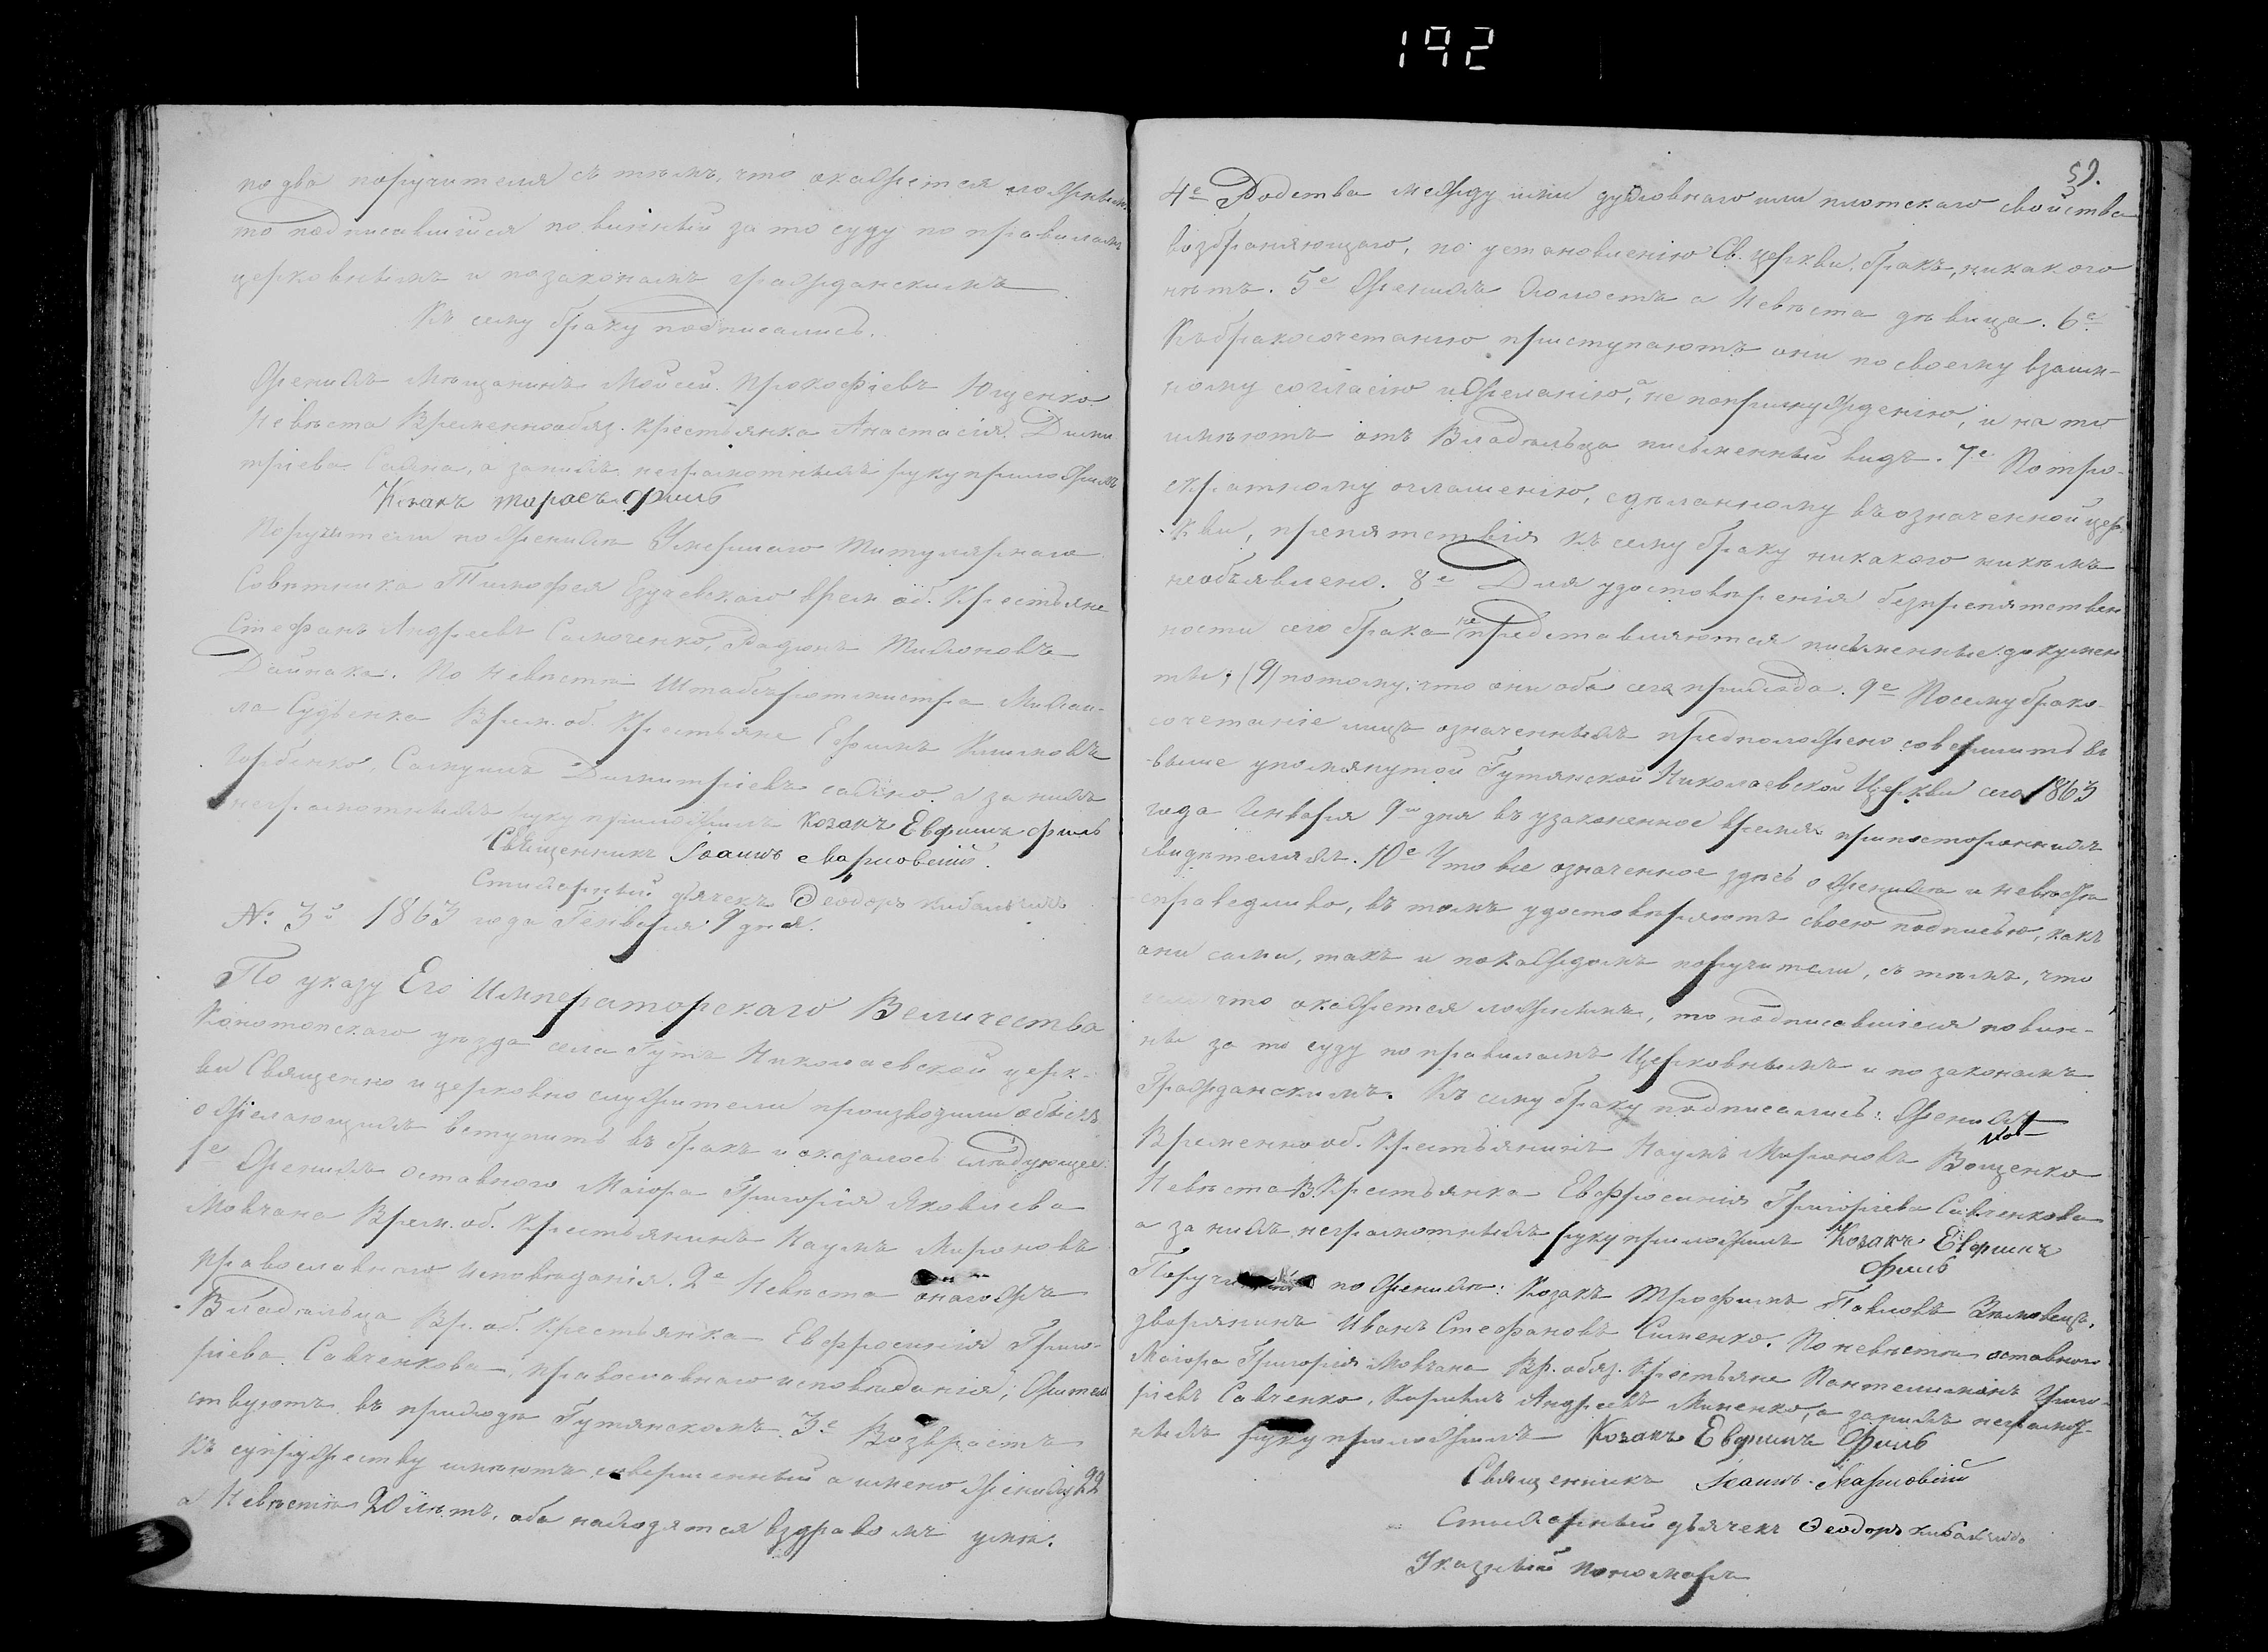 192
по два поручителя съ тѣмъ, что окажется ложнымъ
то подписавшійся повинный за то суду по правиламъ
церковнымъ и позаконамъ гражданскимъ
Къ сему браку подписались.
Женихъ Мѣщанинъ Мойсей Прокофіевъ Ющенко
Невѣста Временнообяз. крестьянка Анастасія Дими
тріева, а заними неграмотными руку приложилъ
Козакъ Тарасъ Филь
Поручители по женихѣ Умершаго Титулярнаго
Совѣтника Тимофея врем. об. Крестьяне
Стефанъ Андреевъ Самоченко, Родіонъ Тихоновъ
По Невѣстѣ Штабъротмистра Михаи-
ла Судьенка Врем. об. Крестьяне Ефимъ Климовъ
Горбенко, Самуилъ Димитріевъ а за нихъ
неграмотныхъ руку приложилъ Козакъ Евфимъ Филь
Священникъ Іоаннъ
Стихарный дьячекъ Ѳеодоръ Кибальчичъ
№ 3й 1863 года Генваря 9 дня.
По указу Его Императорскаго Величества
Конотопскаго уѣзда села Гутъ Николаевской церк-
ви Священно и церковно служители производили обыскъ
о желающихъ вступить въ бракъ и оказалось слѣдующее
1е Женихъ оставного Маіора Григорія Яковлева
Мовчана Врем. об. Крестьянинъ Наумъ Мироновъ
православнаго исповѣданія. 2е Невѣста онагожъ
Владѣльца Вр. об. Крестьянка Евфросинія Григо-
ріева Савченкова, православнаго исповѣданія; Жител
ствуютъ въ приходѣ Гутянскомъ 3е Возврастъ
къ супружеству имѣютъ совершенный а имено женихъ 22
а Невѣста 20 лѣтъ, оба находятся вздравомъ умѣ.
59.
4е Родства между ими духовнаго или плотскаго свойства
возбраняющаго, по установленію Св. церкви, бракъ, никакого
нѣтъ. 5е Женихъ Холостъ а Невѣста дѣвица. 6е
Къ бракосочетанію приступаютъ они по своему взаим-
ному согласію и желанію, а не попринужденію, и на то
имѣютъ отъ Владѣльца письменный видъ. 7е По тро-
екратному оглашенію, сдѣланному въ означенной цер-
кви, препятствія къ сему браку никакого никѣмъ
необъявлено. 8е Для удостовѣренія безпрепятствен
ности сего брака не представляются письменные докумен
ты; (9) потому, что они оба сего прихода. 9е Посему брако-
сочетаніе лицъ означенныхъ предположено совершить въ
выше упомянутой Гутянской Николаевской Церкви сего 1863
года Генваря 9го дня въ узаконенное время припостороннихъ
свидѣтеляхъ. 10е Что все означенное здѣсь о женихѣ и невѣстѣ
справедливо, въ томъ удостовѣряютъ своею подписью, какъ
они сами, такъ и покаждомъ поручители, съ тѣмъ, что
если что окажется ложнымъ, то подписавшіеся повин-
ны за то суду по правиламъ Церковнымъ и по законамъ
Гражданскимъ. Къ сему браку подписались: Женихъ
Временно об. Крестьянинъ Наумъ Мироновъ Вощенко
Невѣста В. Крестьянка Евфросинія Григоріева Савченкова
а за нихъ неграмотныхъ руку приложилъ Козакъ Евфимъ
Филь
по женихѣ: Козакъ Трофимъ Павловъ
дворянинъ Иванъ Стефановъ Сименко. По невѣстѣ оставного
Маіора Григорія Мовчана Вр. обяз. Крестьяне Пантелимонъ Григо-
ріевъ Савченко, Кириллъ Андреевъ Миненко, а занихъ неграмот-
ныхъ руку приложилъ Козакъ Евфимъ Филь
Священникъ Іоаннъ
Стихарный дьячекъ Ѳеодоръ Кибальчичъ
Указный пономарь